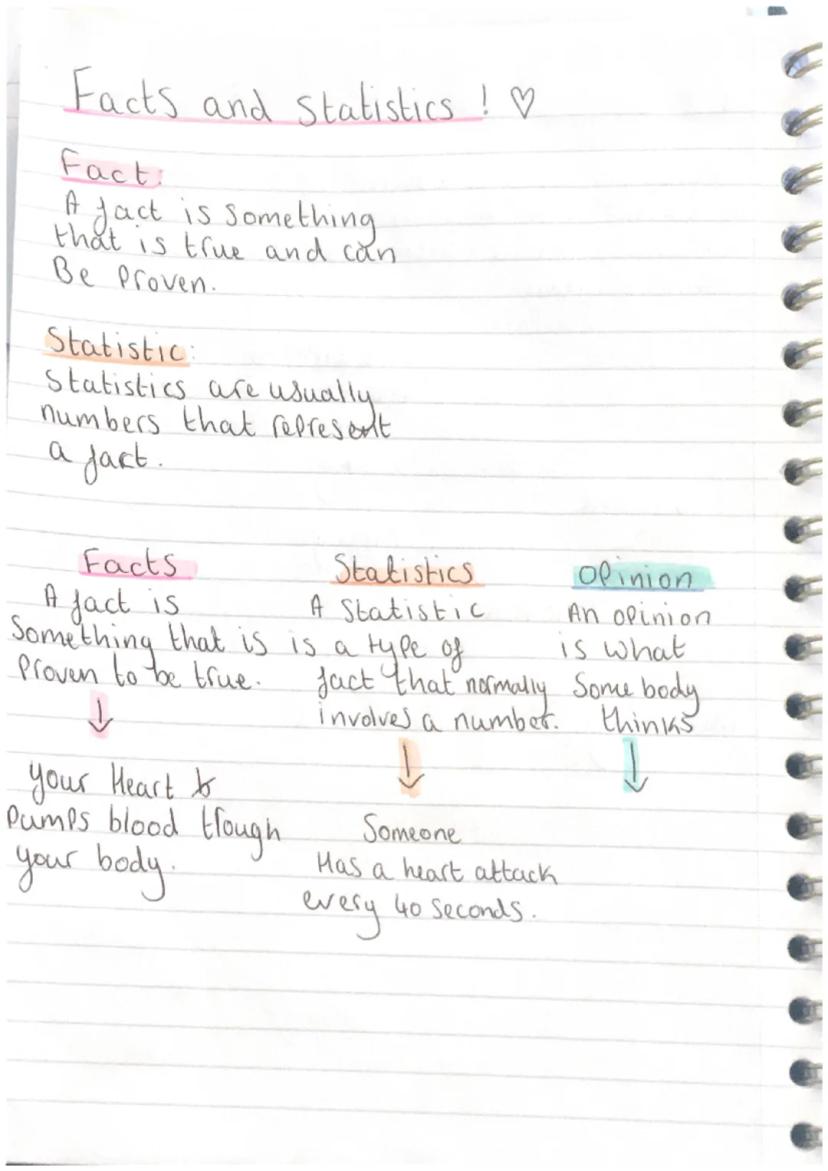 Facts and Statistics ! ♡
Fact:
A fact is something
that is true and can
Be proven.
Statistic:
Statistics are usually
numbers that represent
a fact.
Facts
A fact is
something that is
proven to be true.
↓
your Heart
pumps blood trough
your body.
Statistics
A Statistic
is a type of
fact that normally
involves a number.
↓
Someone
Has a heart attack
every 40 seconds.
Opinion
An opinion
is what
Some body
thinks
↓